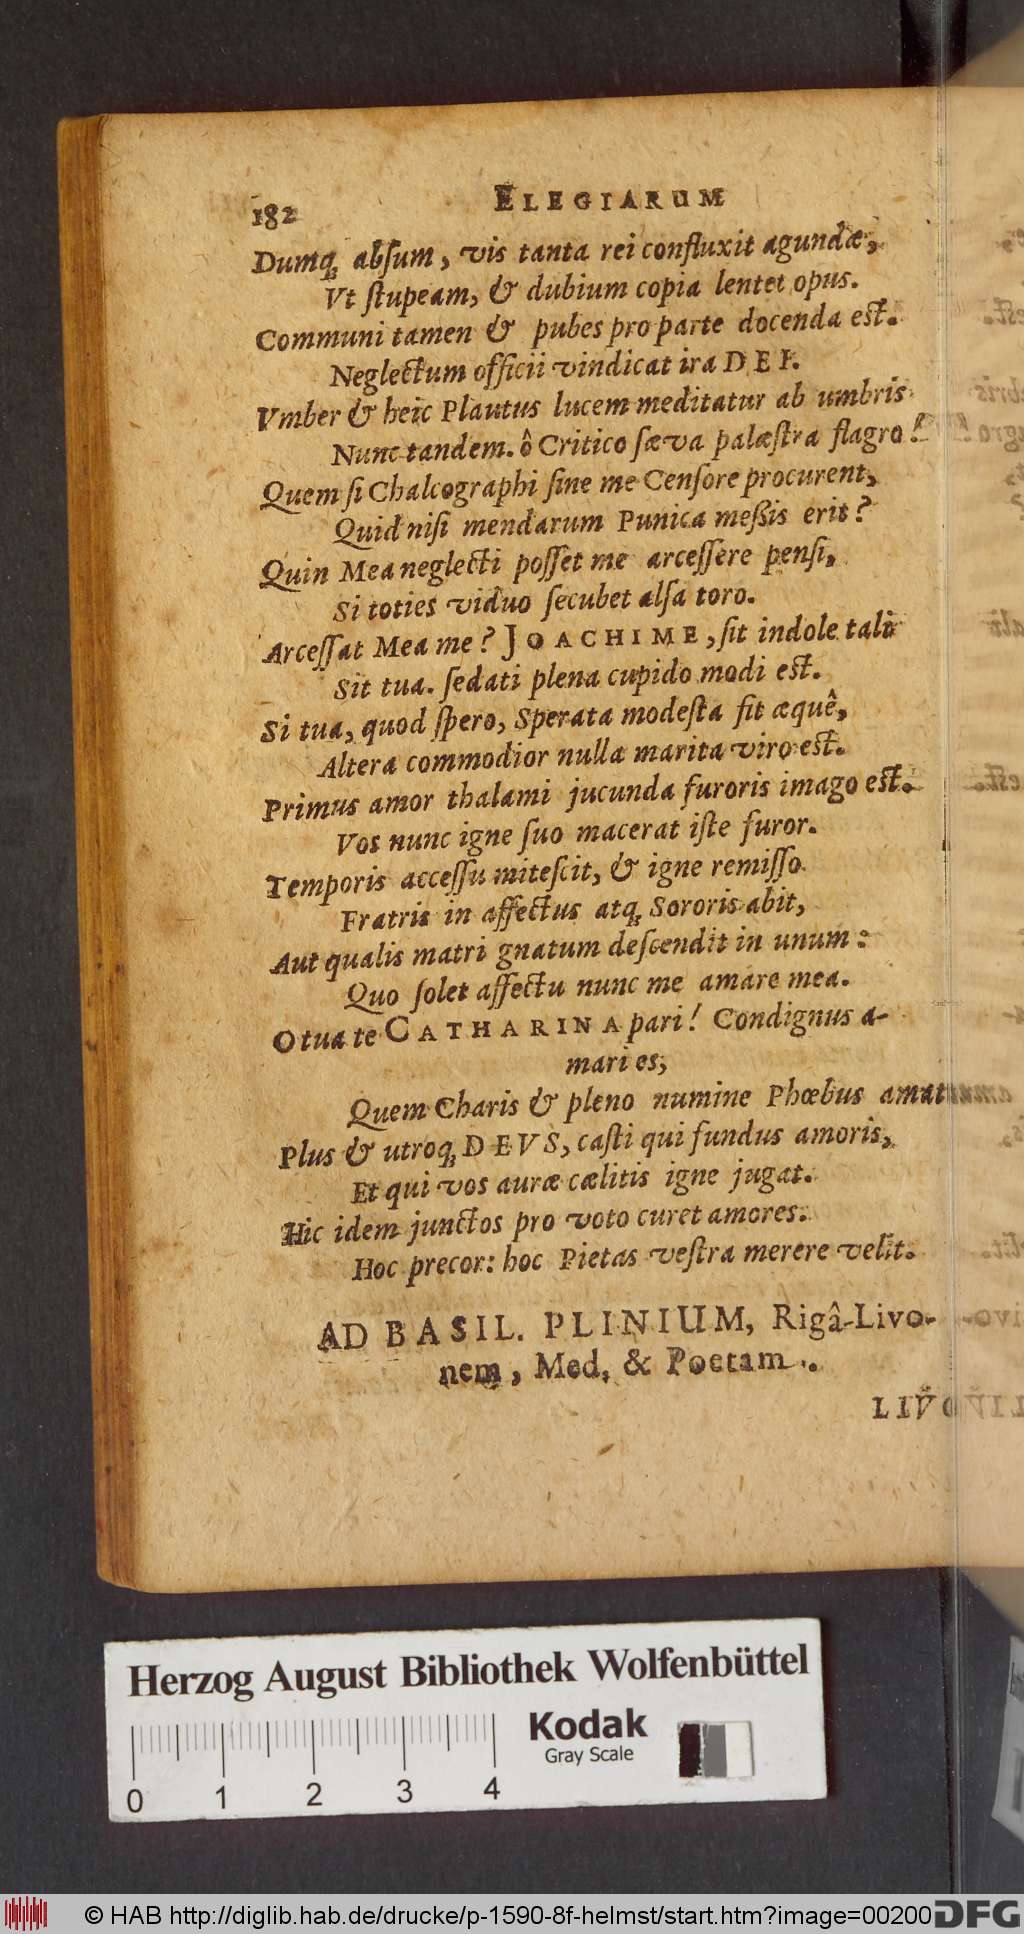 182 ELEGIARUM
Dumq́; abſum, vis tanta rei confluxit agundæ,
Vt ſtupeam, & dubium copia lentet opus.
Communi tamen & pubes pro parte docenda eſt.
Neglectum officii vindicat ira DEI.
Vmber & heic Plautus lucem meditatur ab umbris
Nunc tandem. ô Critico ſæva palæſtra flagro!
Quem ſi Chalcographi ſine me Cenſore procurent,
Quid niſi mendarum Punica meßis erit?
Quin Mea neglecti poſſet me arceſſere penſi,
Si toties viduo ſecubet alſa toro.
Arceſſat Mea me? JOACHIME, ſit indole tali
Sit tua. ſedati plena cupido modi eſt.
Si tua, quod ſpero, Sperata modeſta ſit æquê,
Altera commodior nulla marita viro eſt.
Primus amor thalami jucunda furoris imago eſt.
Vos nunc igne ſuo macerat iſte furor.
Temporis acceſſu miteſcit, & igne remiſſo
Fratris in affectus atq; Sororis abit,
Aut qualis matri gnatum deſcendit in unum:
Quo ſolet affectu nunc me amare mea.
O tua te CATHARINA pari! Condignus a-
mari es,
Quem Charis & pleno numine Phœbus amat
Plus & utroq; DEVS, caſti qui fundus amoris,
Et qui vos auræ cælitis igne jugat.
Hic idem junctos pro voto curet amores.
Hoc precor: hoc Pietas veſtra merere velit.
AD BASIL. PLINIUM, Rigâ-Livo-
nem, Med. & Poetam.
LIVO
Herzog August Bibliothek Wolfenbüttel
Kodak
Gray Scale
0 1 2 3 4
© HAB http://diglib.hab.de/drucke/p-1590-8f-helmst/start.htm?image=00200 DFG